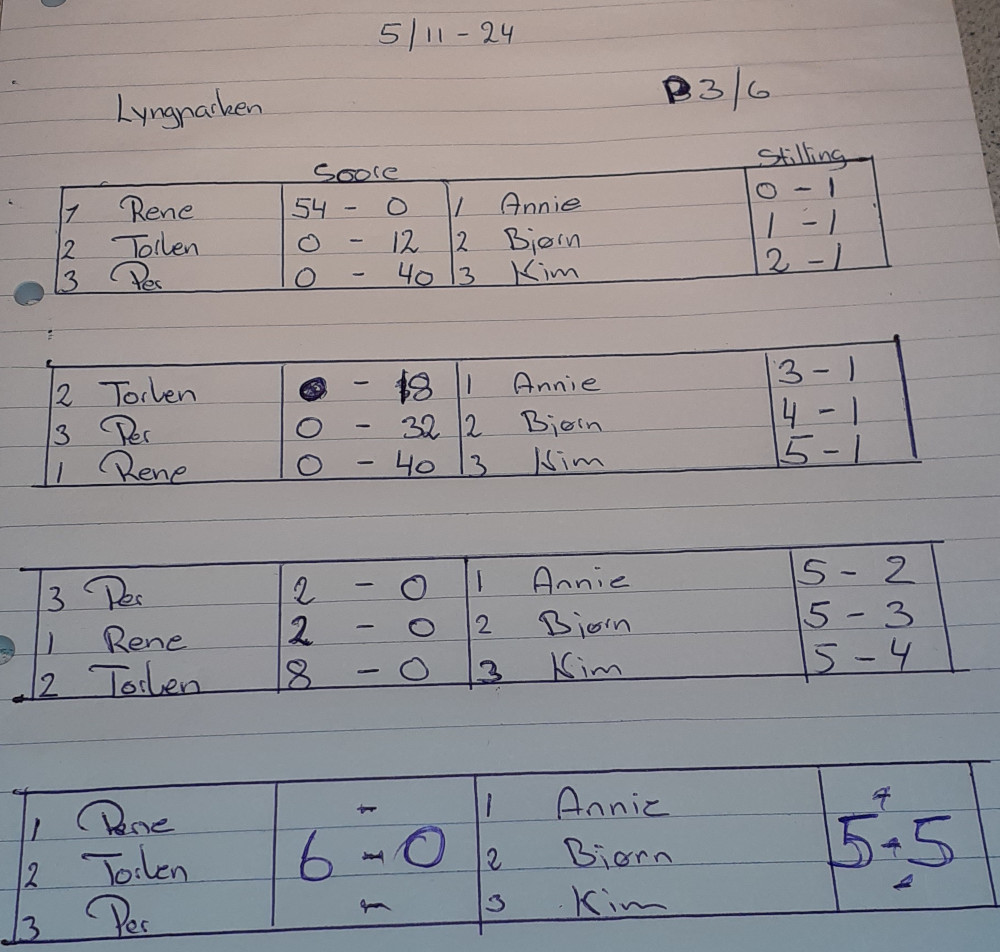 5/11-24
Lyngparken B3/6
Score Stilling
1 Rene 54 - 0 1 Annie 0 - 1
2 Torben 0 - 12 2 Bjørn 1 - 1
3 Per 0 - 40 3 Kim 2 - 1
2 Torben - 18 1 Annie 3 - 1
3 Per 0 - 32 2 Bjørn 4 - 1
1 Rene 0 - 40 3 Kim 5 - 1
3 Per 2 - 0 1 Annie 5 - 2
1 Rene 2 - 0 2 Bjørn 5 - 3
2 Torben 8 - 0 3 Kim 5 - 4
1 Rene - 1 Annie
2 Torben 6 - 0 2 Bjørn 5 - 5
3 Per - 3 Kim -